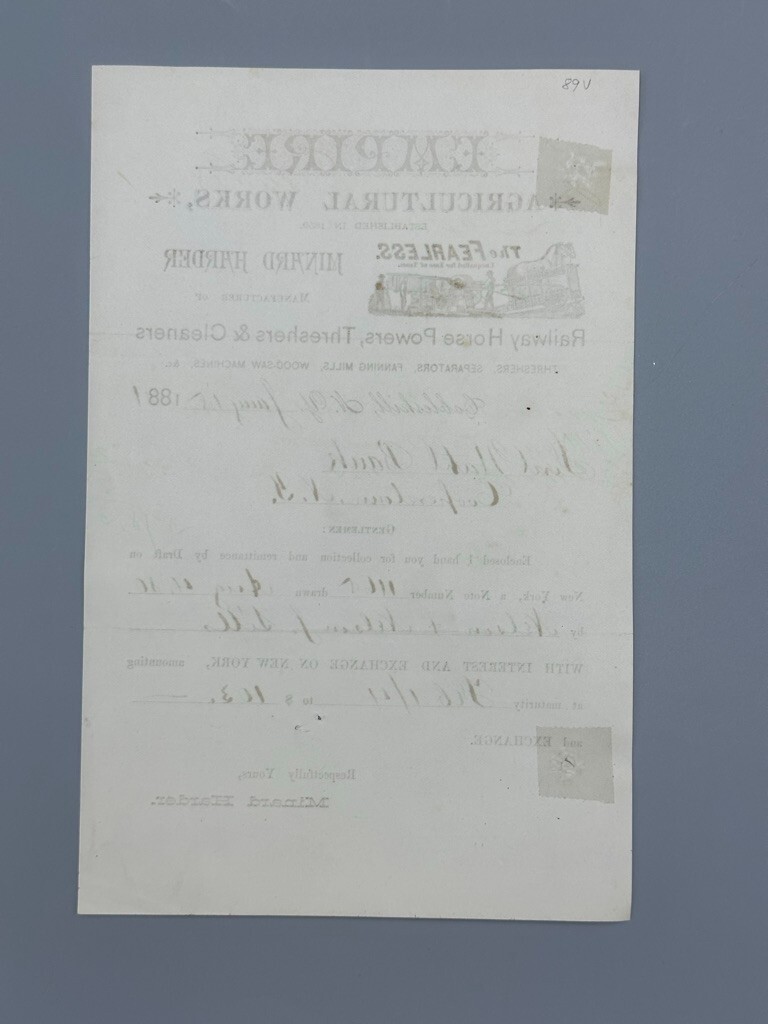 89V
EMPIRE
AGRICULTURAL WORKS,
ESTABLISHED IN 1859.
The FEARLESS.
MINARD HARDER
MANUFACTURER OF
Railway Horse Powers, Threshers & Cleaners
THRESHERS, SEPARATORS, FANNING MILLS, WOOD-SAW MACHINES, &c.
Cobleskill, N.Y. Jany 15 1881
First Natl Bank
Cooperstown N.Y.
GENTLEMEN:
Enclosed I hand you for collection and remittance by Draft on
New York, a Note Number drawn
by Nelson &
WITH INTEREST AND EXCHANGE ON NEW YORK, amounting
at maturity Feb 1/81 to $ 103.
and EXCHANGE.
Respectfully Yours,
Minard Harder.